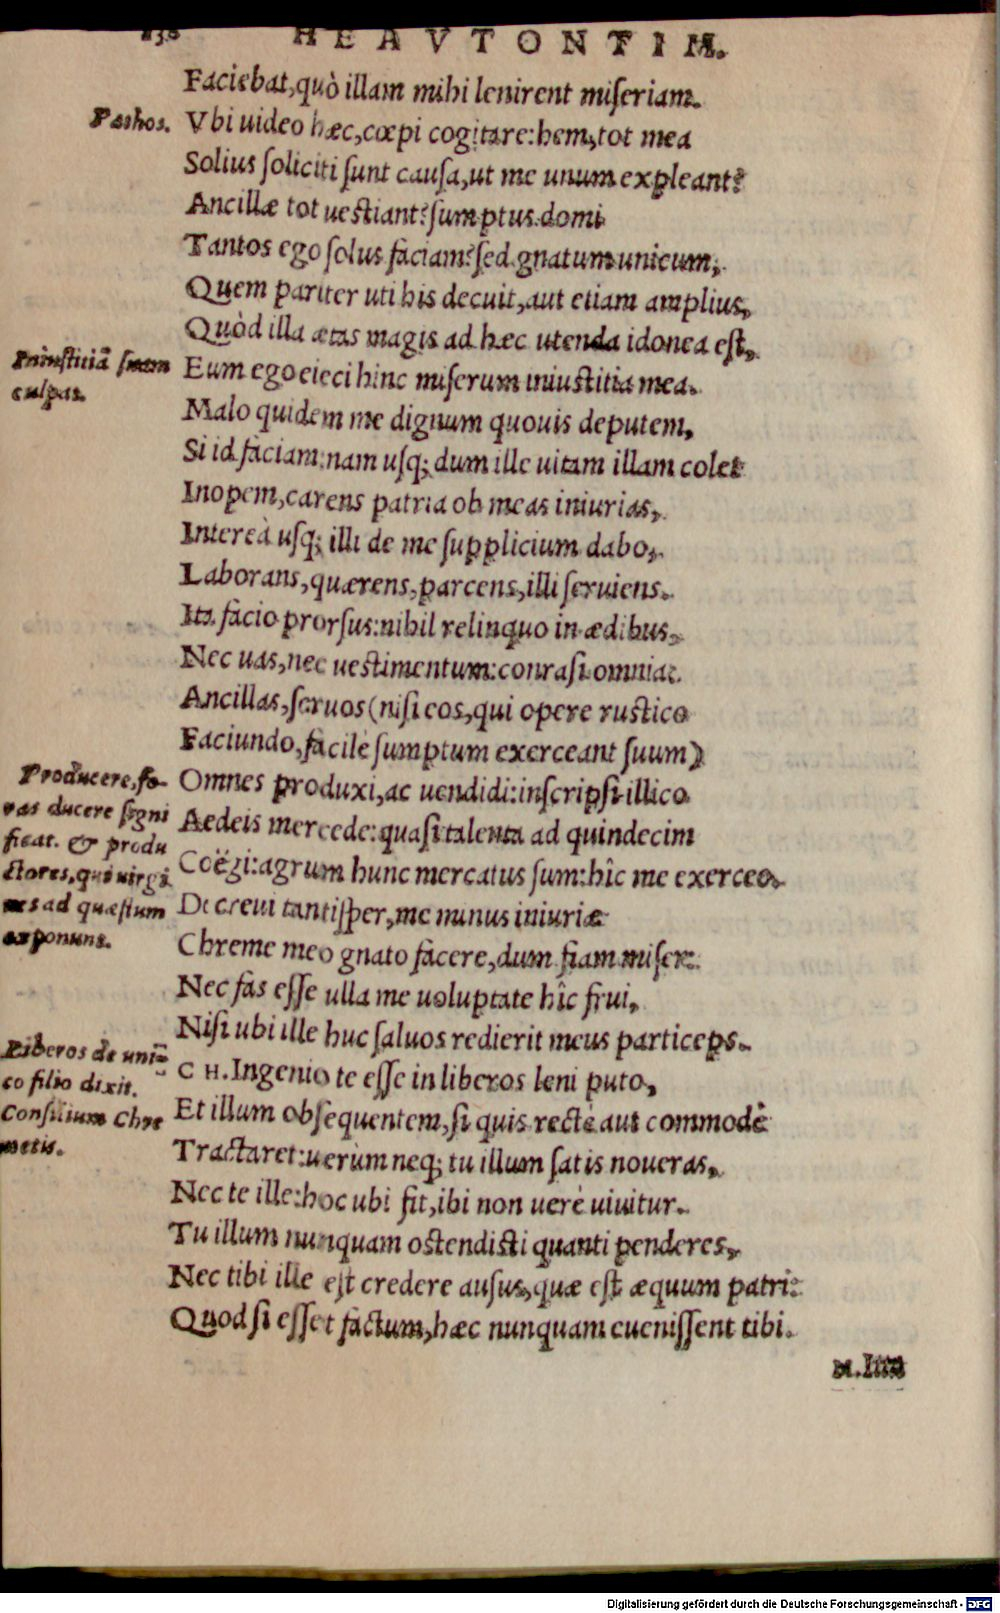 HEAVTONTIM.
Faciebat, quò illam mihi lenirent miſeriam.
Pathos.
Vbi uideo hæc, cœpi cogitare: hem, tot mea
Solius ſoliciti ſunt cauſa, ut me unum expleant?
Ancillæ tot ueſtiant? ſumptus domi
Tantos ego ſolus faciam? ſed gnatum unicum,
Quem pariter uti his decuit, aut etiam amplius,
Quòd illa ætas magis ad hæc utenda idonea eſt,
Iniuſtitiã ſuam
culpat.
Eum ego eieci hinc miſerum iniuſtitia mea.
Malo quidem me dignum quouis deputem,
Si id faciam: nam uſq; dum ille uitam illam colet
Inopem, carens patria ob meas iniurias,
Intereà uſq; illi de me ſupplicium dabo,
Laborans, quærens, parcens, illi ſeruiens.
Ita facio prorſus: nihil relinquo in ædibus,
Nec uas, nec ueſtimentum: conraſi omnia:
Ancillas, ſeruos (niſi eos, qui opere ruſtico
Faciundo, facilè ſumptum exerceant ſuum)
Producere, fo-
ras ducere ſigni
ficat. & produ
ctores, qui uirgi
nes ad quæſtum
exponunt.
Omnes produxi, ac uendidi: inſcripſi illico
Aedeis mercede: quaſi talenta ad quindecim
Coëgi: agrum hunc mercatus ſum: hîc me exerceo.
Decreui tantiſper, me minus iniuriæ
Chreme meo gnato facere, dum fiam miſer:
Nec fas eſſe ulla me uoluptate hîc frui,
Niſi ubi ille huc ſaluos redierit meus particeps.
Liberos de uni-
co filio dixit.
Conſilium Chre
metis.
CH. Ingenio te eſſe in liberos leni puto,
Et illum obſequentem, ſi quis rectè aut commodè
Tractaret: uerùm neq; tu illum ſatis noueras,
Nec te ille: hoc ubi fit, ibi non uerè uiuitur.
Tu illum nunquam oſtendiſti quanti penderes,
Nec tibi ille eſt credere auſus, quæ eſt æquum patri:
Quod ſi eſſet factum, hæc nunquam eueniſſent tibi.
M. Iſtuc
Digitalisierung gefördert durch die Deutsche Forschungsgemeinschaft - DFG